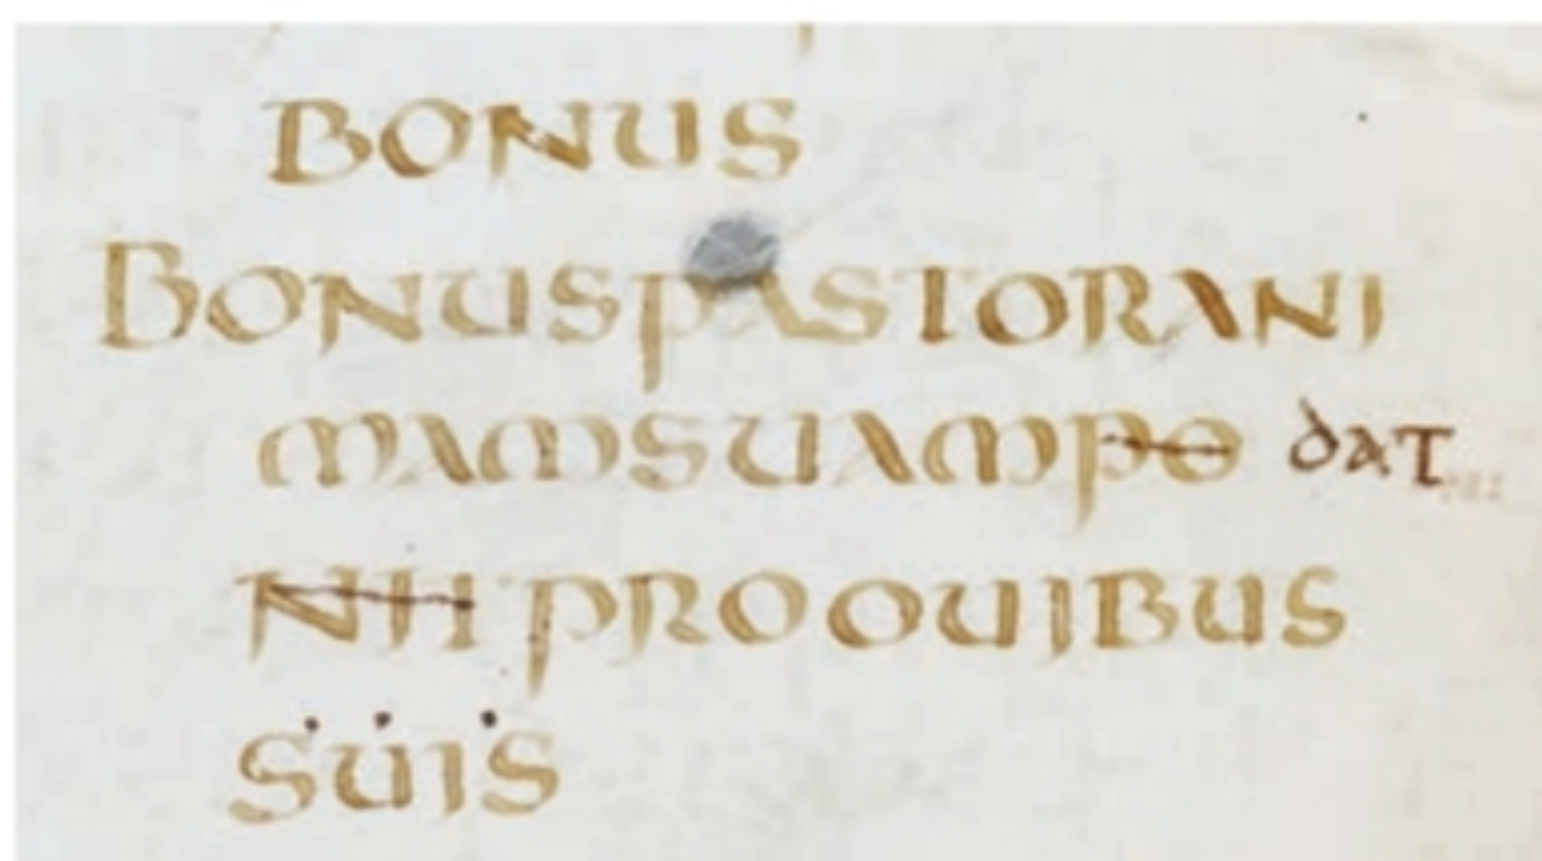 BONUS
BONUSPASTORANI
MAMSUAMPO dat
NIT PROOUIBUS
SUIS